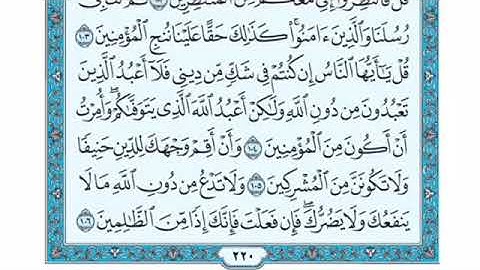 قُلْ فَٱنتَظِرُوٓا۟ إِنِّى مَعَكُم مِّنَ ٱلْمُنتَظِرِينَ ١٠٢ ثُمَّ نُنَجِّى
رُسُلَنَا وَٱلَّذِينَ ءَامَنُوا۟ كَذَٰلِكَ حَقًّا عَلَيْنَا نُنجِ ٱلْمُؤْمِنِينَ ١٠٣
قُلْ يَٰٓأَيُّهَا ٱلنَّاسُ إِن كُنتُمْ فِى شَكٍّ مِّن دِينِى فَلَآ أَعْبُدُ ٱلَّذِينَ
تَعْبُدُونَ مِن دُونِ ٱللَّهِ وَلَٰكِنْ أَعْبُدُ ٱللَّهَ ٱلَّذِى يَتَوَفَّىٰكُمْ وَأُمِرْتُ
أَنْ أَكُونَ مِنَ ٱلْمُؤْمِنِينَ ١٠٤ وَأَنْ أَقِمْ وَجْهَكَ لِلدِّينِ حَنِيفًا
وَلَا تَكُونَنَّ مِنَ ٱلْمُشْرِكِينَ ١٠٥ وَلَا تَدْعُ مِن دُونِ ٱللَّهِ مَا لَا
يَنفَعُكَ وَلَا يَضُرُّكَ فَإِن فَعَلْتَ فَإِنَّكَ إِذًا مِّنَ ٱلظَّٰلِمِينَ ١٠٦
٢٢٠